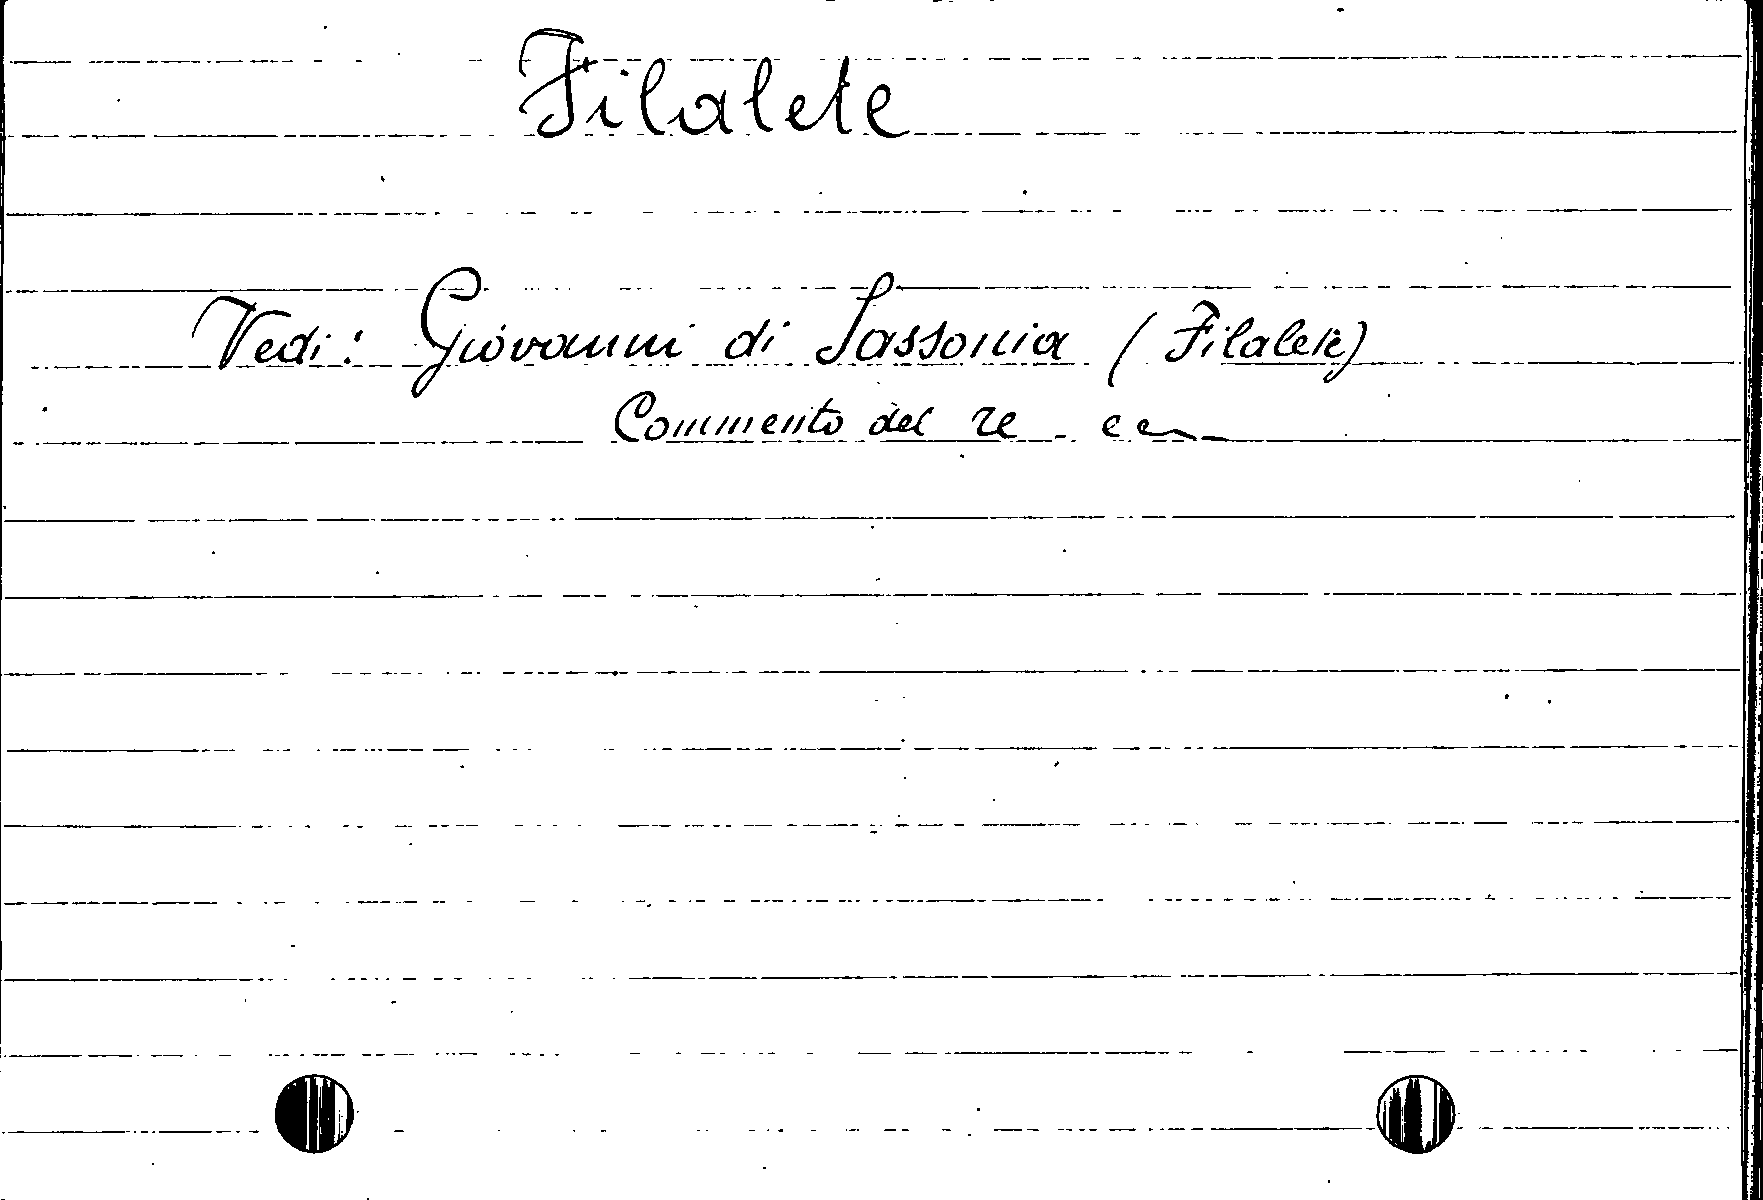 Filalete
Vedi: Giovanni di Sassonia (Filalete)
Commento del re